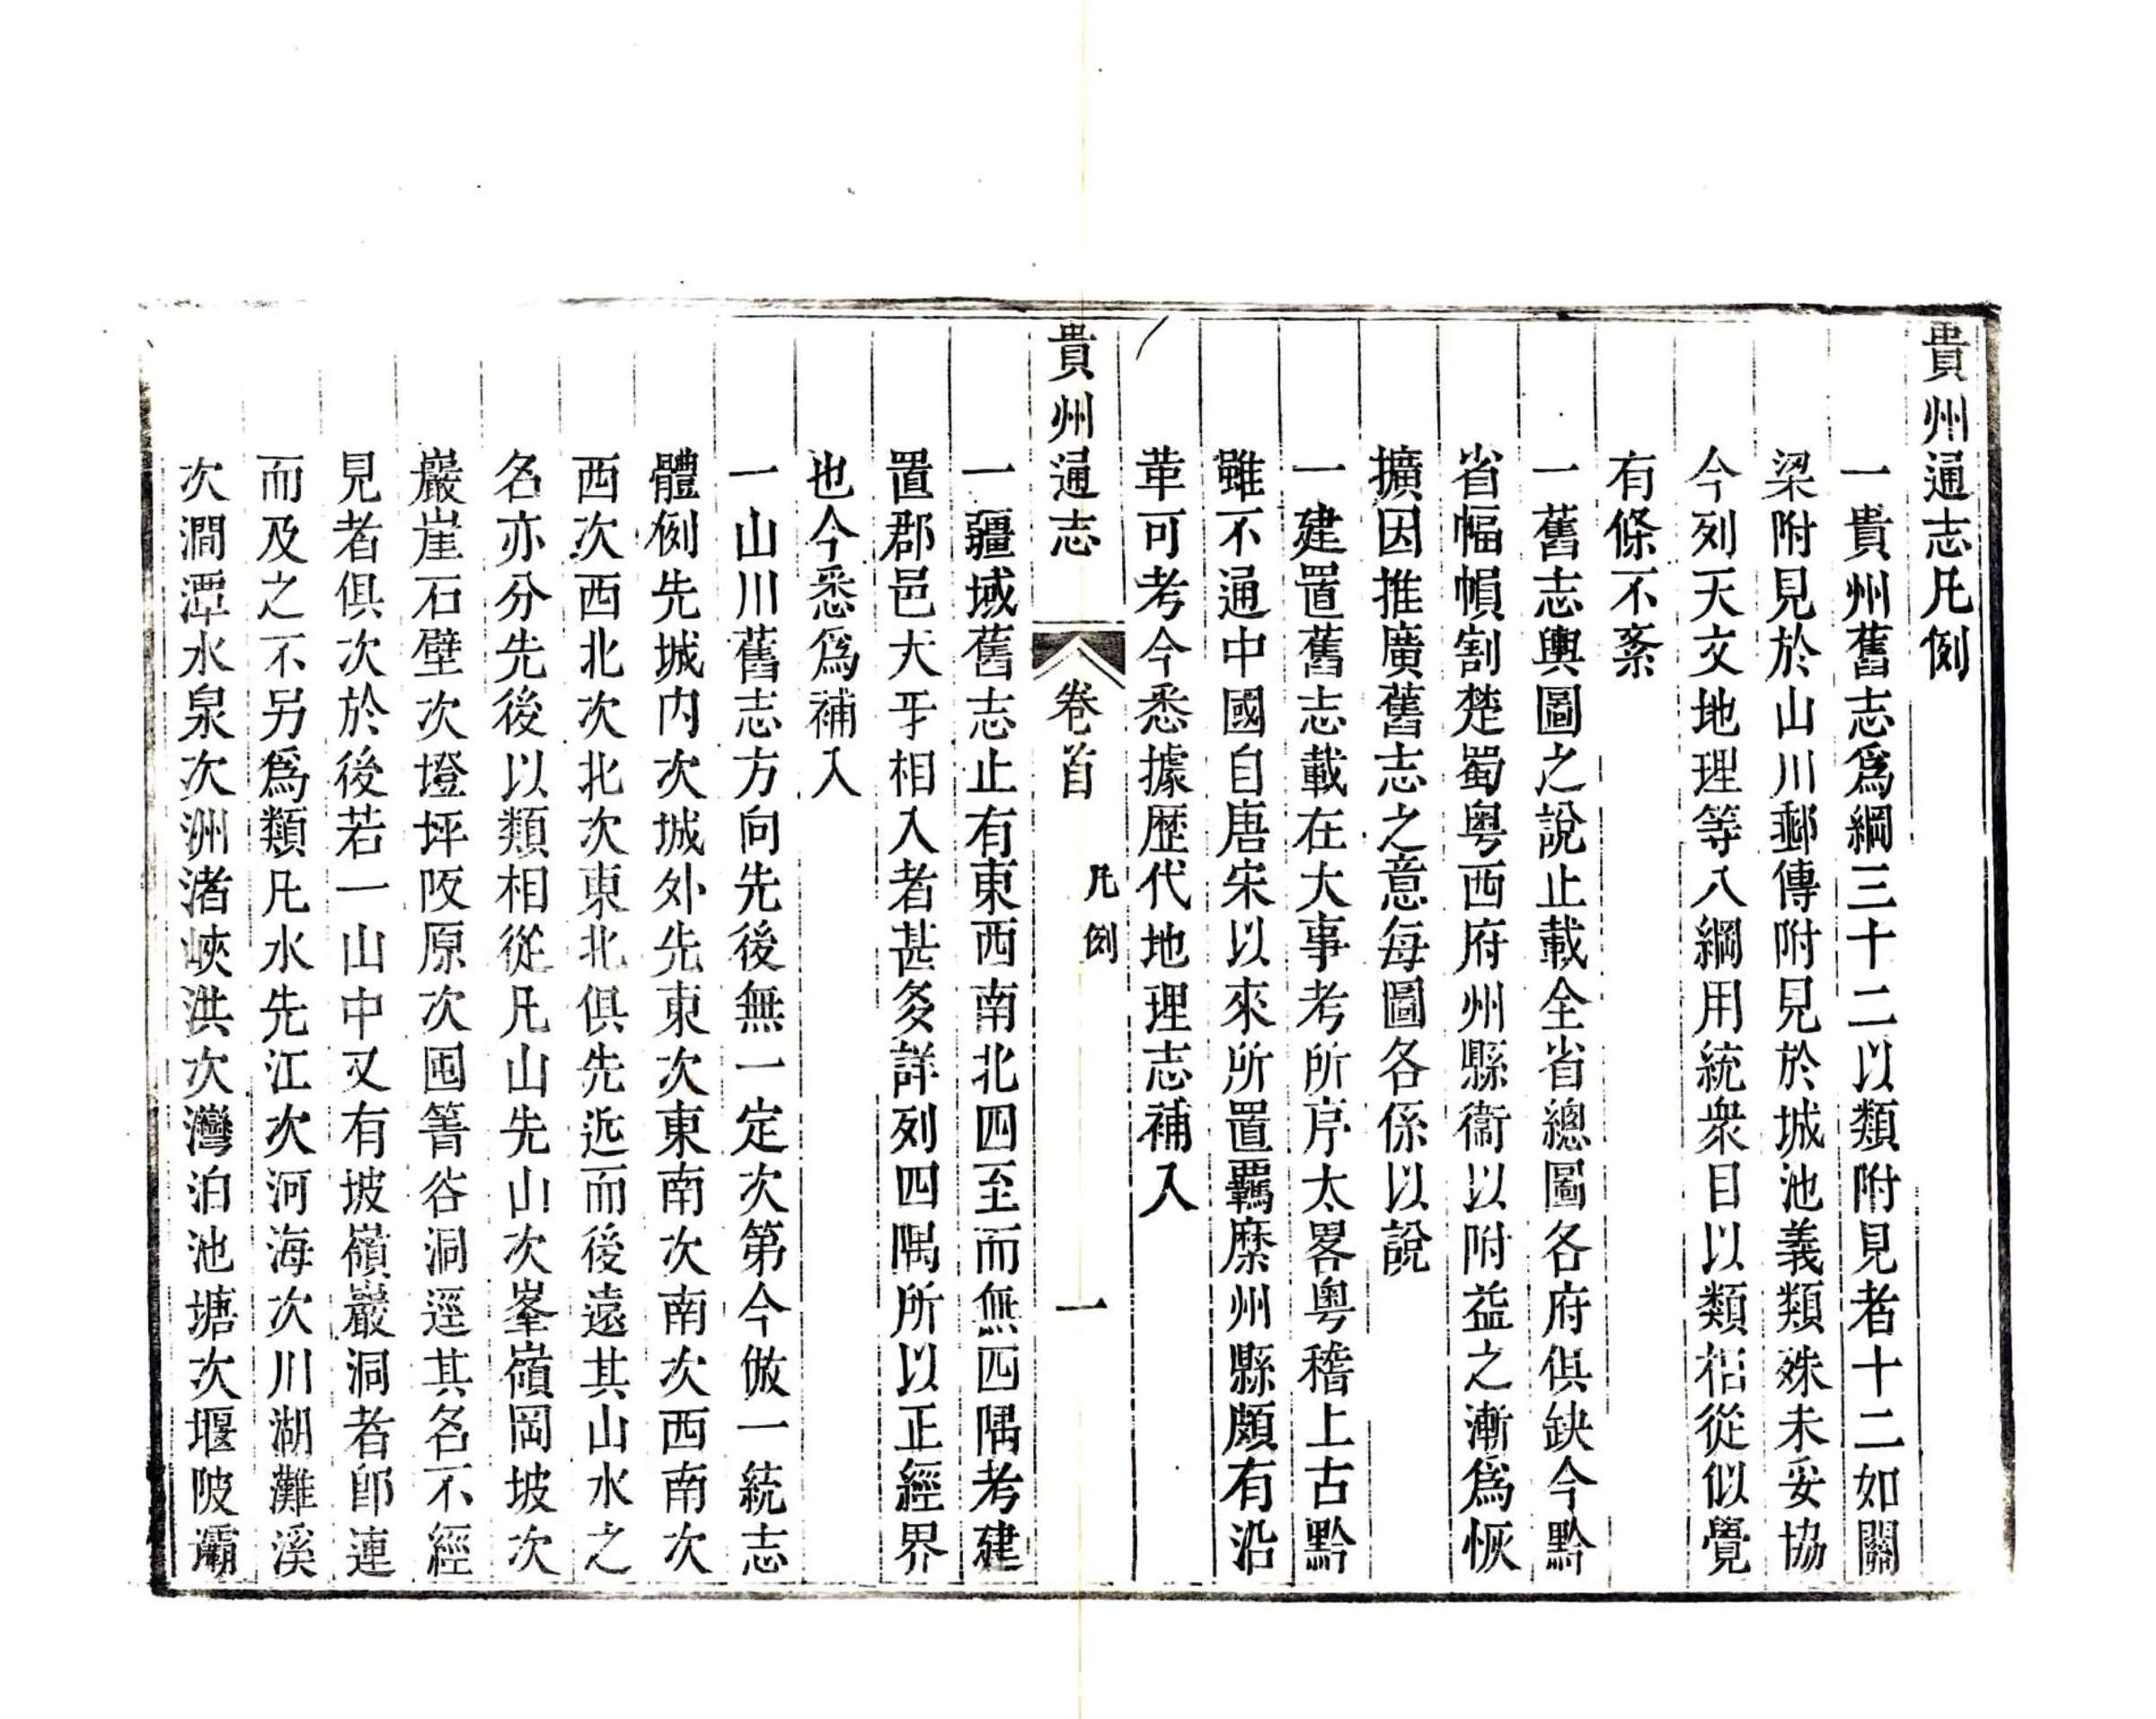 貴州通志凡例
一貴州舊志爲綱三十二以類附見者十二如關
梁附見於山川郵傳附見於城池義類殊未妥協
今列天文地理等八綱用統衆目以類相從似覺
有條不紊
一舊志輿圖之說止載全省總圖各府俱缺今黔
省幅幀割楚蜀粤西府州縣衞以附益之漸爲恢
擴因推廣舊志之意每圖各係以說
一建置舊志載在大事考所序太畧粤稽上古黔
雖不通中國自唐宋以來所置羈縻州縣頗有沿
革可考今悉據歴代地理志補入
貴州通志 卷首 凡例 一
一疆域舊志止有東西南北四至而無四隅考建
置郡邑犬牙相入者甚多詳列四隅所以正經界
也今悉爲補入
一山川舊志方向先後無一定次第今倣一統志
體例先城内次城外先東次東南次南次西南次
西次西北次北次東北俱先近而後遠其山水之
名亦分先後以類相從凡山先山次峯嶺岡坡次
巖崖石壁次墱坪阪原次囤箐谷洞逕其名不經
見者俱次於後若一山中又有坡嶺巖洞者卽連
而及之不另爲類凡水先江次河海次川湖灘溪
次澗潭水泉次洲渚峽洪次灣泊池塘次堰陂灞